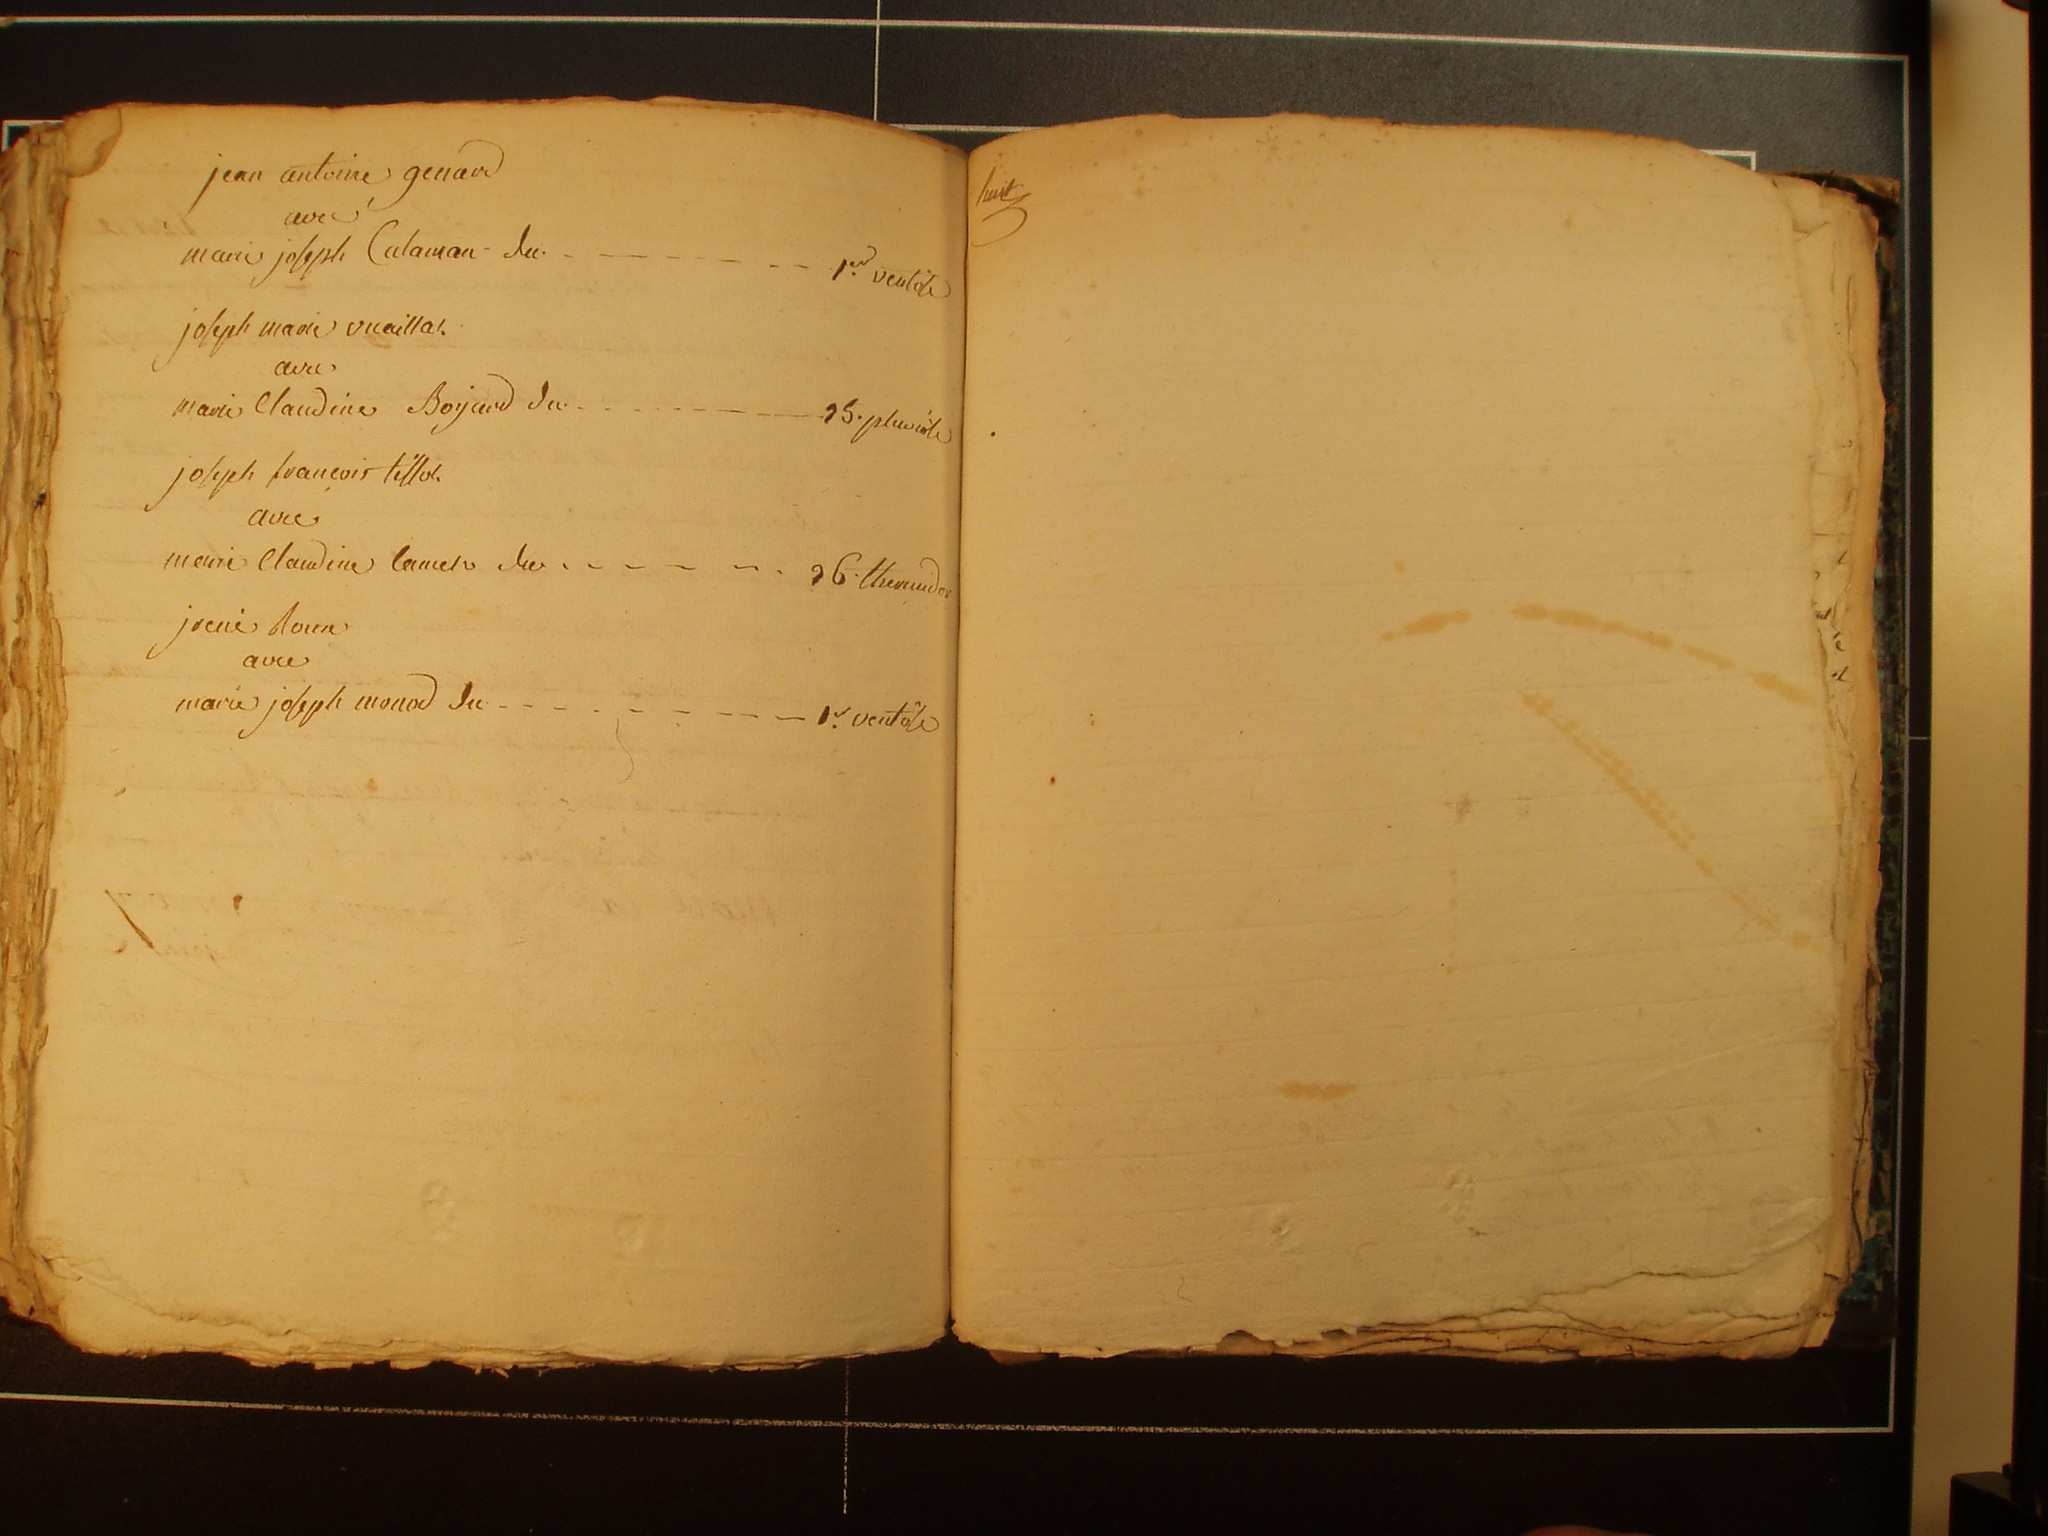 jean antoine genard
avec
marie joseph Calaman du 1er ventôse
joseph marie vuaillat
avec
marie Claudine Boijard du 25. pluviôse
joseph françois tissot
avec
marie Claudine lamet du 26. thermidor
avec
marie joseph monod du 1r. ventôse
huit